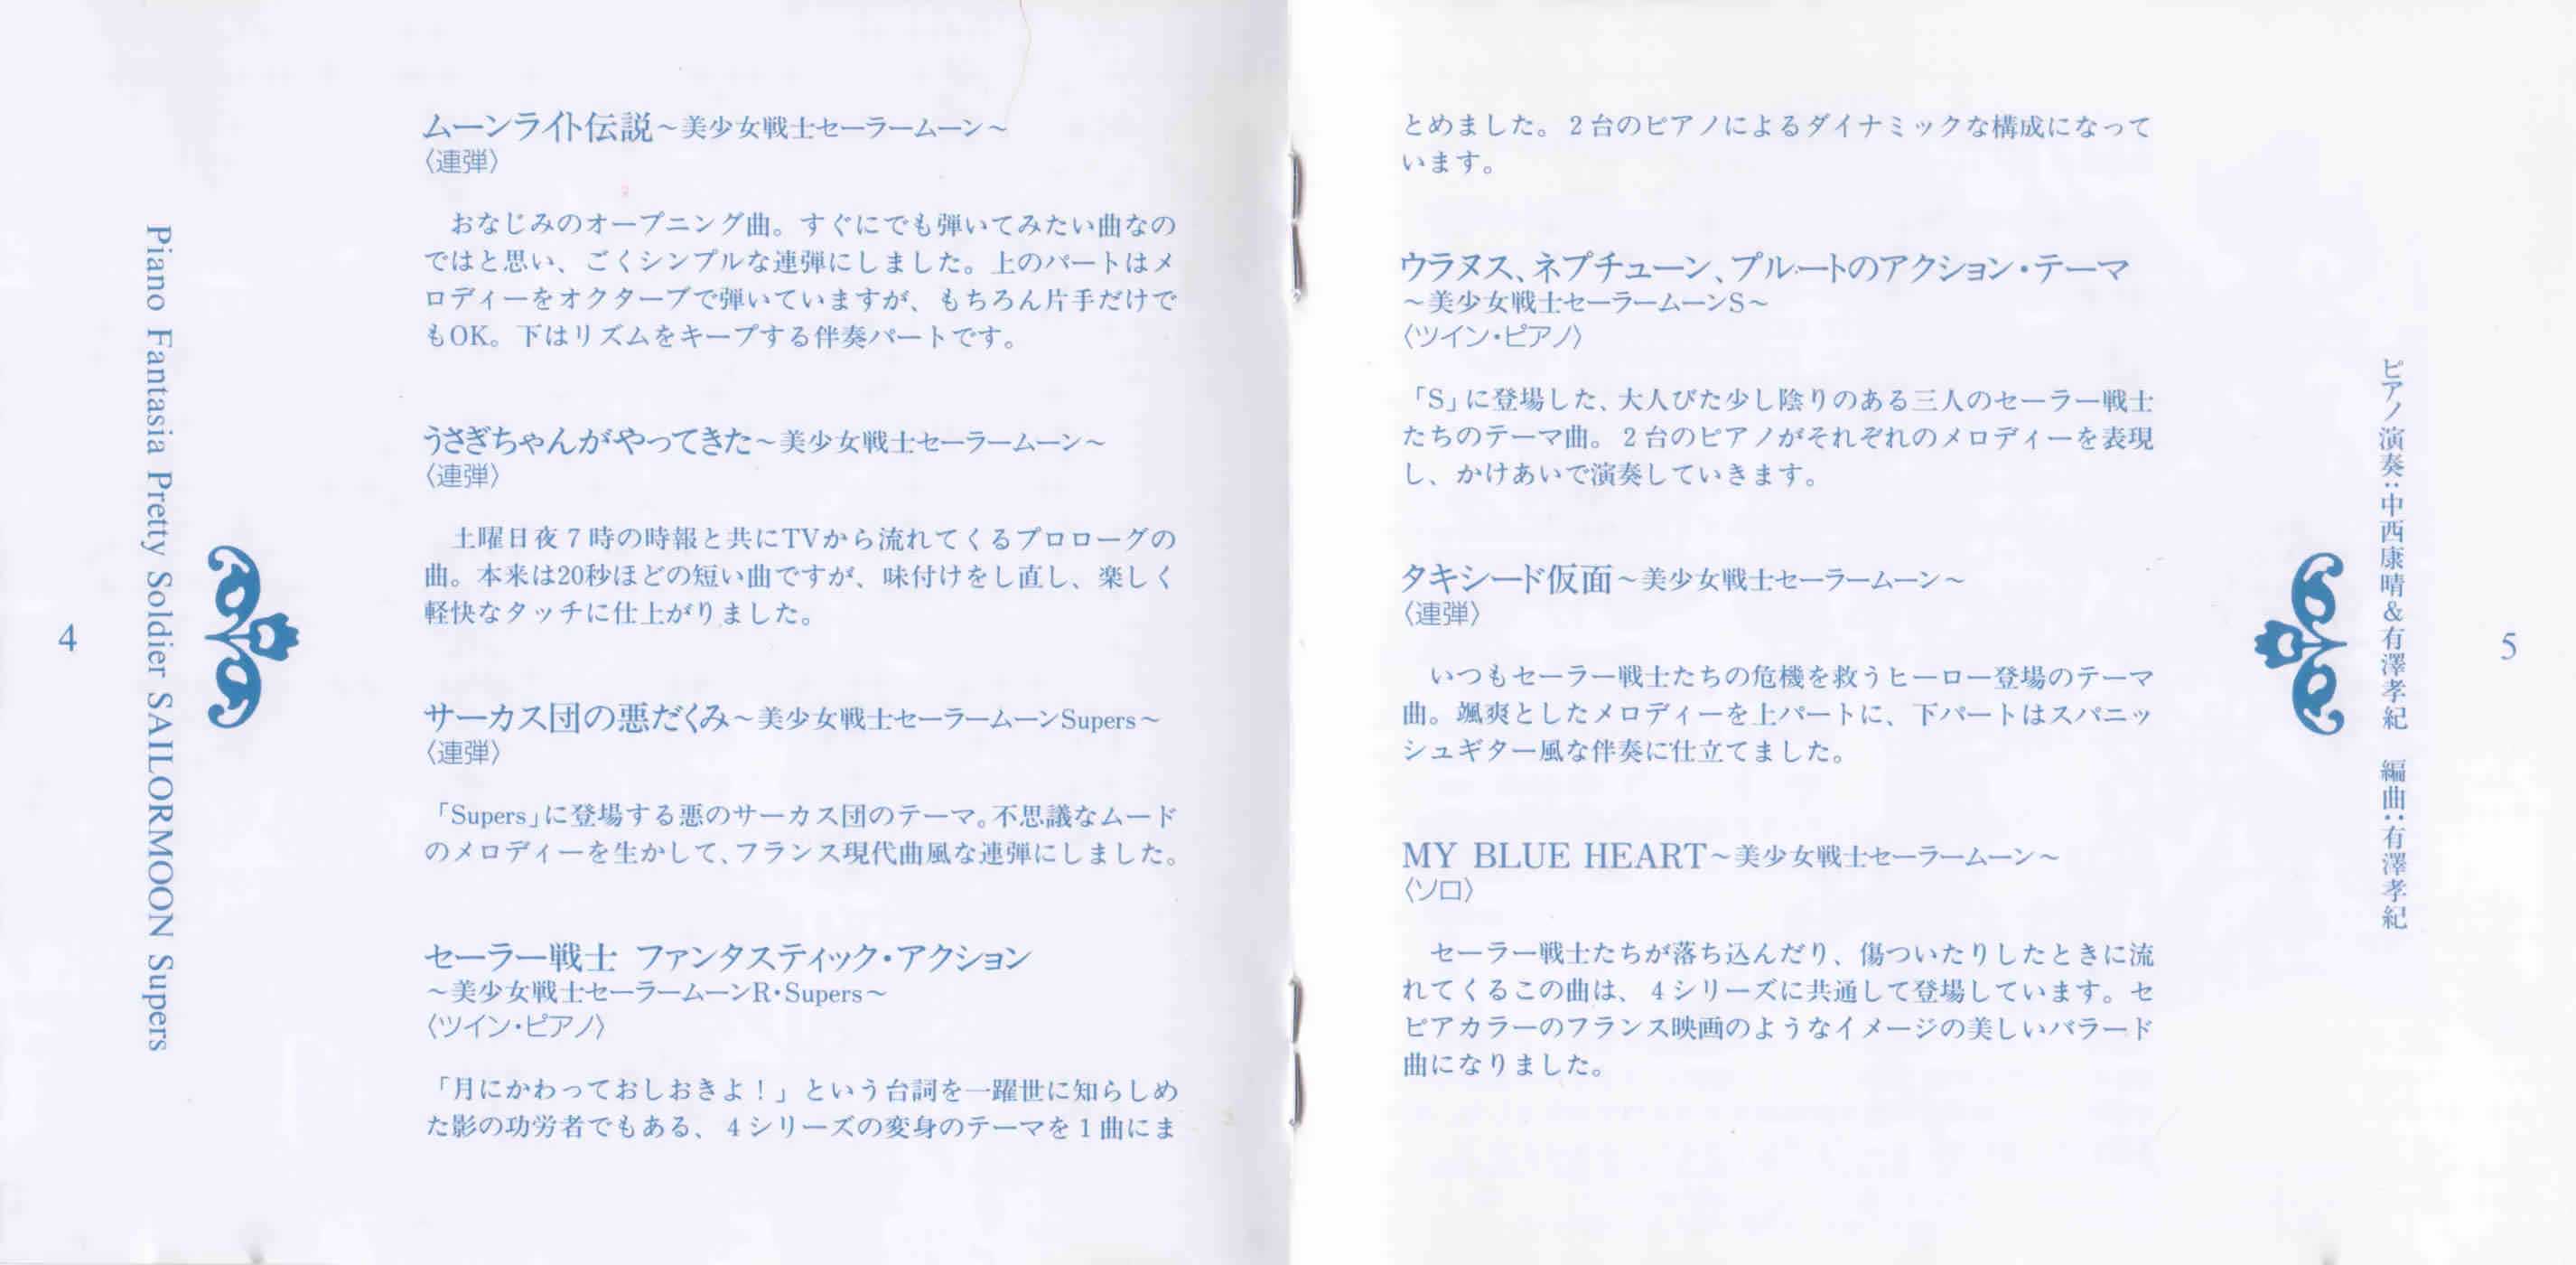 Piano Fantasia Pretty Soldier SAILORMOON Supers
4
ムーンライト伝説～美少女戦士セーラームーン～
〈連弾〉
おなじみのオープニング曲。すぐにでも弾いてみたい曲なの
ではと思い、ごくシンプルな連弾にしました。上のパートはメ
ロディーをオクターブで弾いていますが、もちろん片手だけで
もOK。下はリズムをキープする伴奏パートです。
うさぎちゃんがやってきた～美少女戦士セーラームーン～
〈連弾〉
土曜日夜７時の時報と共にTVから流れてくるプロローグの
曲。本来は20秒ほどの短い曲ですが、味付けをし直し、楽しく
軽快なタッチに仕上がりました。
サーカス団の悪だくみ～美少女戦士セーラームーンSupers～
〈連弾〉
「Supers」に登場する悪のサーカス団のテーマ。不思議なムード
のメロディーを生かして、フランス現代曲風な連弾にしました。
セーラー戦士 ファンタスティック・アクション
～美少女戦士セーラームーンR・Supers～
〈ツイン・ピアノ〉
「月にかわっておしおきよ！」という台詞を一躍世に知らしめ
た影の功労者でもある、４シリーズの変身のテーマを１曲にま
とめました。２台のピアノによるダイナミックな構成になって
います。
ウラヌス、ネプチューン、プルートのアクション・テーマ
～美少女戦士セーラームーンS～
〈ツイン・ピアノ〉
「S」に登場した、大人びた少し陰りのある三人のセーラー戦士
たちのテーマ曲。２台のピアノがそれぞれのメロディーを表現
し、かけあいで演奏していきます。
タキシード仮面～美少女戦士セーラームーン～
〈連弾〉
いつもセーラー戦士たちの危機を救うヒーロー登場のテーマ
曲。颯爽としたメロディーを上パートに、下パートはスパニッ
シュギター風な伴奏に仕立てました。
MY BLUE HEART～美少女戦士セーラームーン～
〈ソロ〉
セーラー戦士たちが落ち込んだり、傷ついたりしたときに流
れてくるこの曲は、４シリーズに共通して登場しています。セ
ピアカラーのフランス映画のようなイメージの美しいバラード
曲になりました。
ピアノ演奏：中西康晴＆有澤孝紀　編曲：有澤孝紀
5